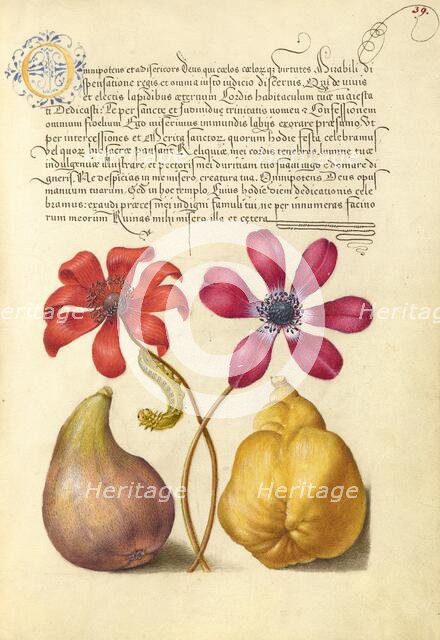 39.
Omnipotens et adisericors Deus, qui coelos coelorq̃, virtutes Mirabili di
spensatione regis et omnia iusto indicio discernis. Qui de viuis
et electis lapidibus aeternum Cordis habitaculum tuae maiesta
ti Dedicasti: Te per sanctae et Indiuiduae trinitatis nomen & Confessionem
omnium fidelium Ego miserrimus immundis labijs exorare praesumo. Et
per intercessiones et Merita sanctor. quorum hodie festa celebramus
vel quor. hic sacrae pausant Reliquiae
indulgentiae illustrare,
gneris Ne despicias in me misero creatura tua. Omnipotens Deus opus
manuum tuarum. Et in hoc templo, Cuius hodie diem dedicationis cele
bramus: exaudi praeces mei indigni famuli tui, ne per innumeras facino
rum meorum Ruinas mihi misero illa et cetera.
Heritage
Heritage
Heritage
Heritage
Heritage
Heritage